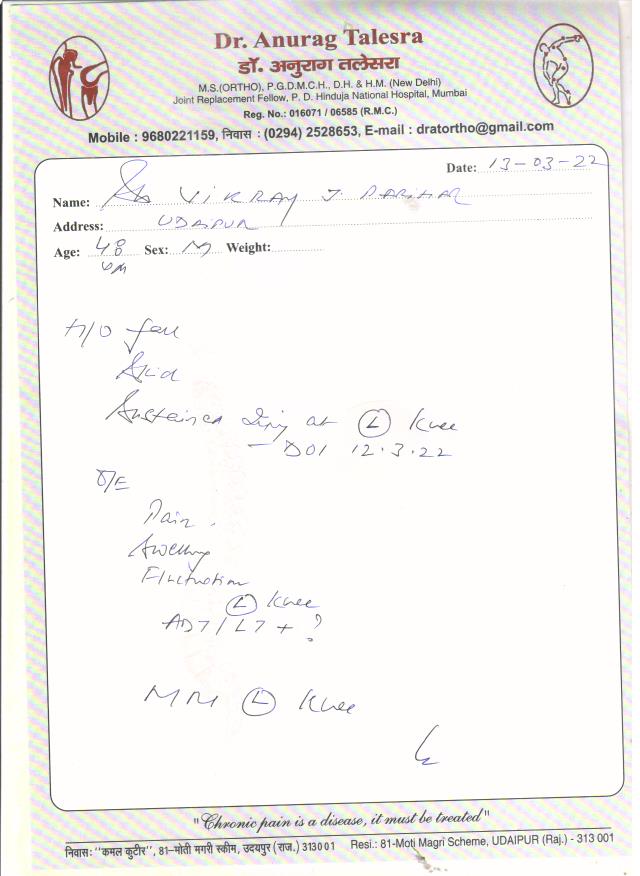 Dr. Anurag Talesra
डॉ. अनुराग तलेसरा
M.S.(ORTHO), P.G.D.M.C.H., D.H. & H.M. (New Delhi)
Joint Replacement Fellow, P. D. Hinduja National Hospital, Mumbai
Reg. No.: 016071 / 06585 (R.M.C.)
Mobile : 9680221159, निवास : (0294) 2528653, E-mail : dratortho@gmail.com
Date: 13-03-22
Name: VIKRAY J. PARIHAR
Address: UDAIPUR
Age: 48 Sex: M Weight:
H/O fall
Skid
Sustained Injury at (L) Knee
- DOI 12.3.22
O/E
Pain.
Swelling
Fluctuation
(L) Knee
ADT/LT + ?
(L) Knee
"Chronic pain is a disease, it must be treated"
निवास: "कमल कुटीर", 81-मोती मगरी स्कीम, उदयपुर (राज.) 313001 Resi.: 81-Moti Magri Scheme, UDAIPUR (Raj.) - 313 001